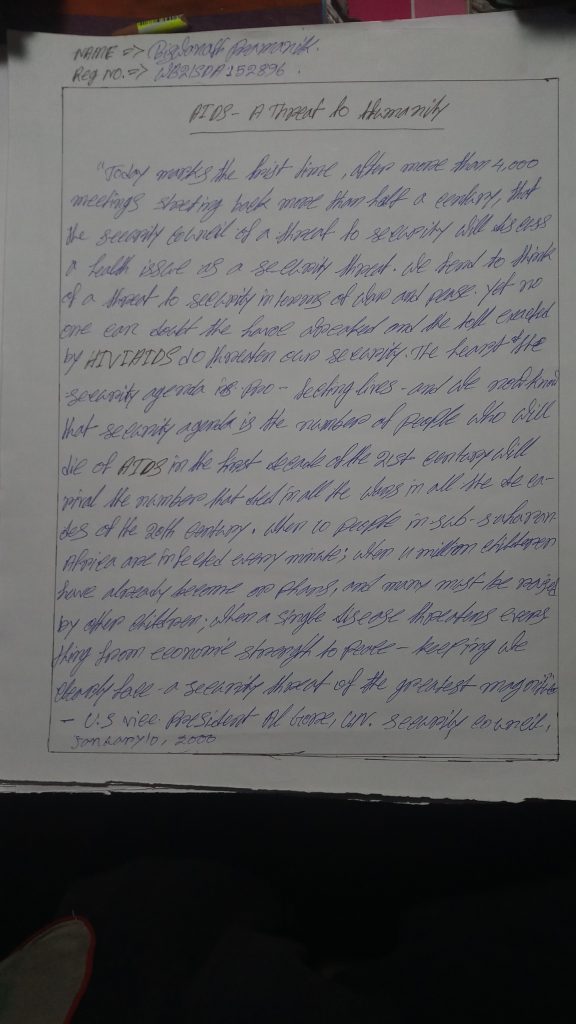 NAME => Pramanik.
Reg NO. => WB21SDA152896.
AIDS - A Threat to Humanity
"Today marks the first time, after more than 4,000
meetings streting back more than half a century, that
the security council of a threat to security will discuss
a health issue as a security threat. We tend to think
of a threat to security in terms of war and pease. Yet no
one can doubt the havoc wreaked and the toll exacted
by HIV/AIDS do threaten our security. The heart of the
security agenda is pro - tecting lives - and we now know
that security agenda is the number of people who will
die of AIDS in the first decade of the 21st century will
rival the number that died in all the wars in all the de ca-
des of the 20th century. When 10 people in-sub-saharan
Africa are infected every minute; when 11 million children
have already become or phans, and many must be raised
by other children; when a single disease threatens every
thing from economic strength to peace - keeping we
clearly face - a security threat of the greatest magnitude
- U.S vice. President Al Gore, UN. security council,
January 10, 2000